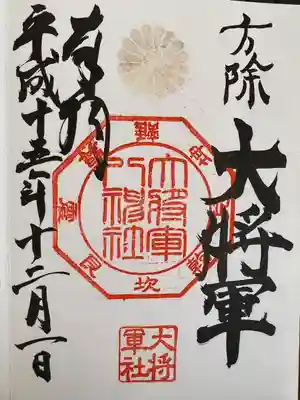 方除
大将軍
奉拝
平成十五年十二月一日
大将軍
八神社
大将
軍社